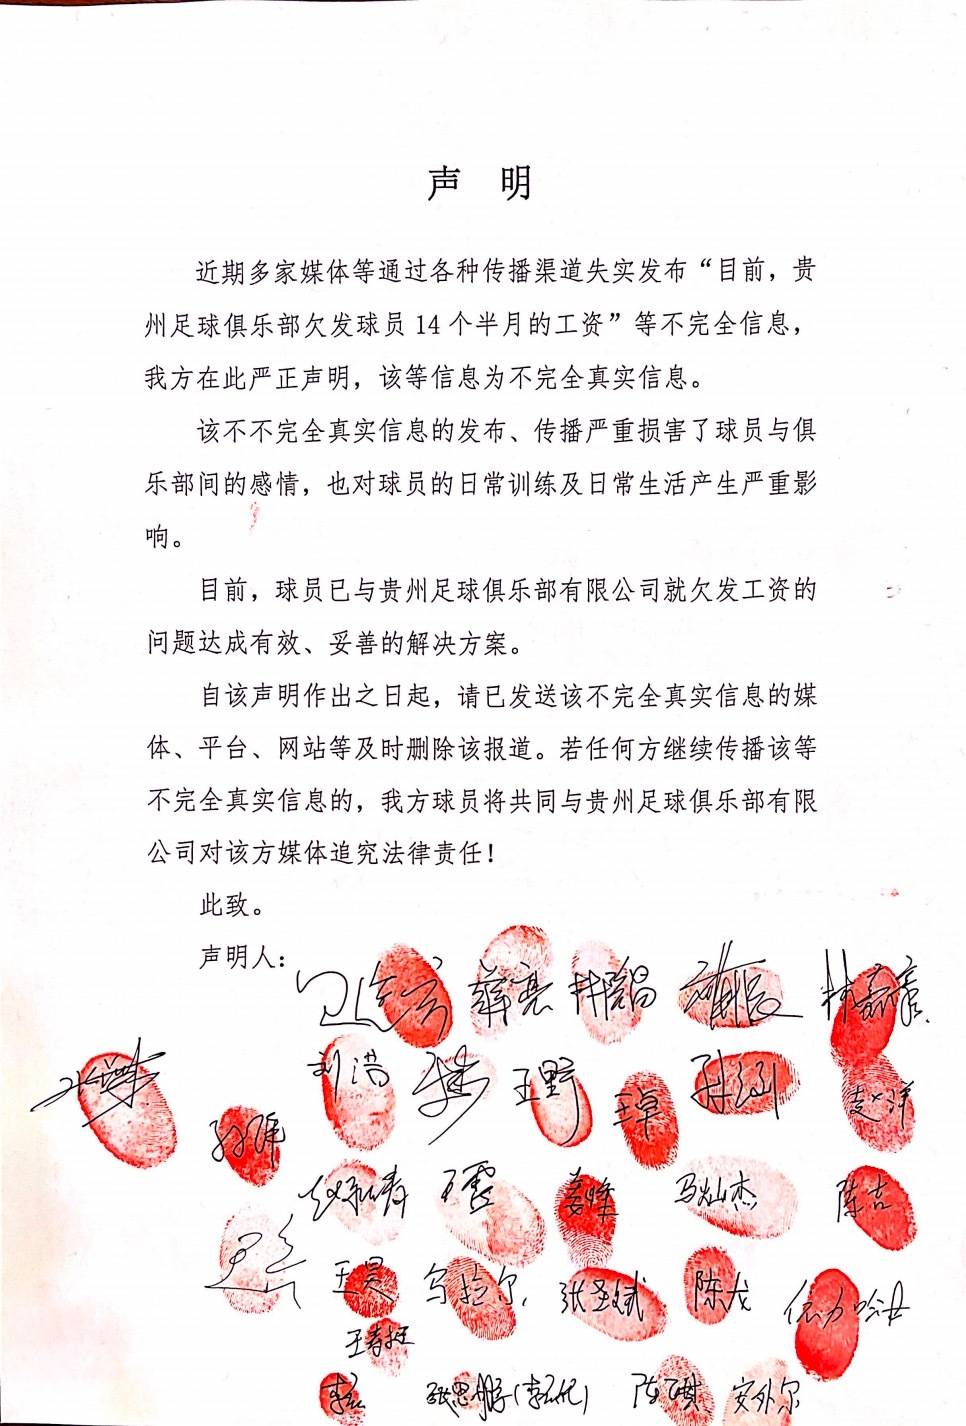 声 明
近期多家媒体等通过各种传播渠道失实发布“目前，贵
州足球俱乐部欠发球员 14 个半月的工资”等不完全信息，
我方在此严正声明，该等信息为不完全真实信息。
该不不完全真实信息的发布、传播严重损害了球员与俱
乐部间的感情，也对球员的日常训练及日常生活产生严重影
响。
目前，球员已与贵州足球俱乐部有限公司就欠发工资的
问题达成有效、妥善的解决方案。
自该声明作出之日起，请已发送该不完全真实信息的媒
体、平台、网站等及时删除该报道。若任何方继续传播该等
不完全真实信息的，我方球员将共同与贵州足球俱乐部有限
公司对该方媒体追究法律责任！
此致。
声明人：
刘浩 王野 王卓 赵洋
王霖 姜峰 马灿杰 陈吉
王昊 乌拉尔 张圣斌 陈龙 依力哈木
张思鹏 陈祺 安外尔